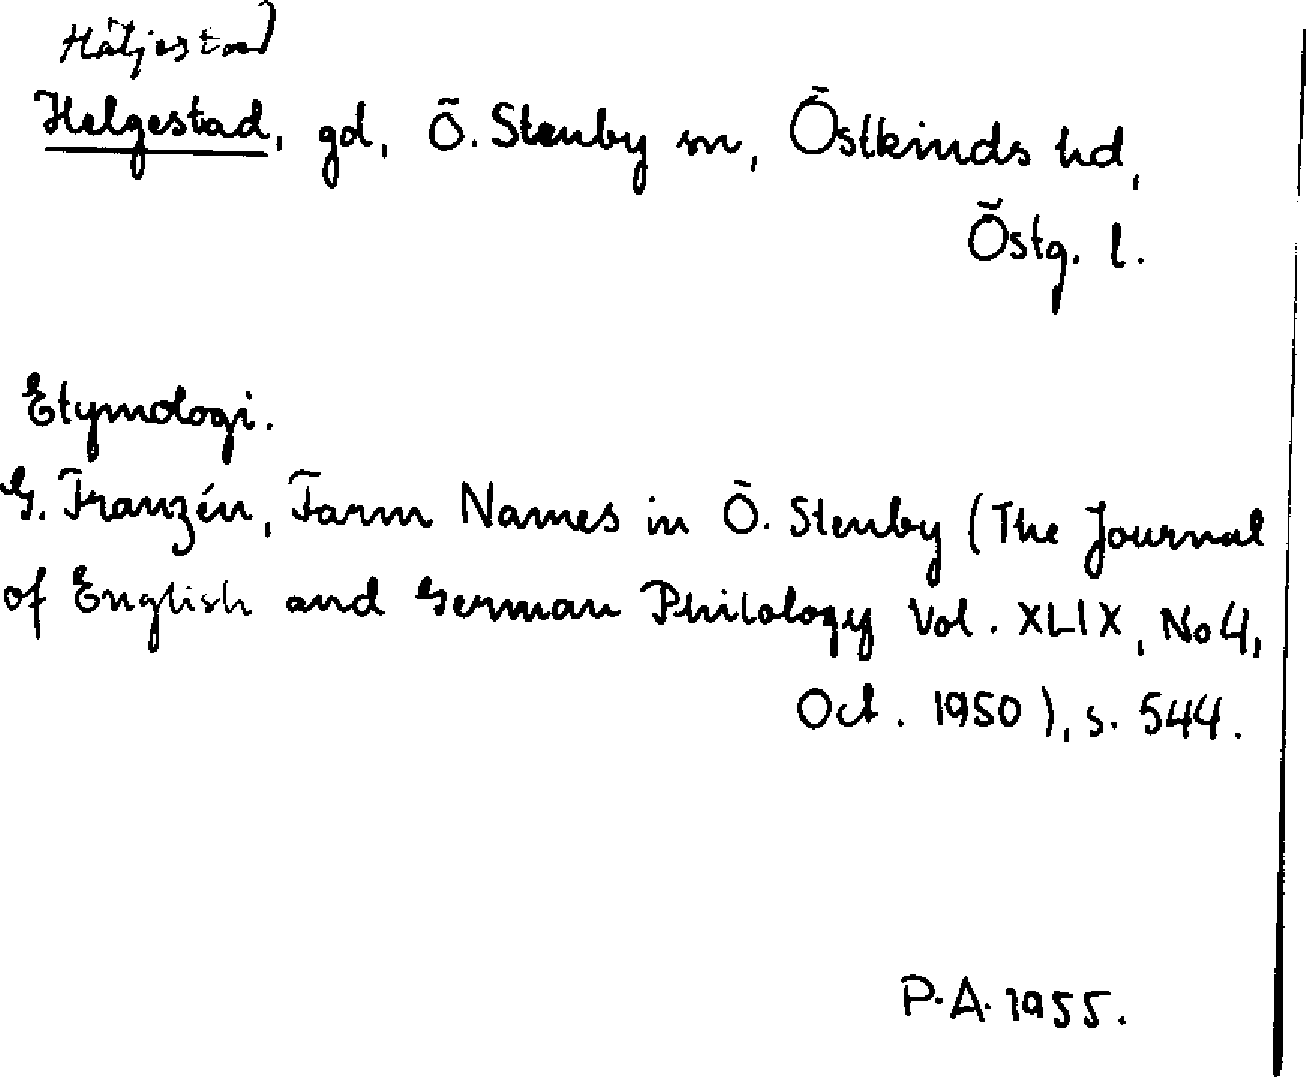 Häljestad
Helgestad, gd, Ö. Stenby sn, Östkinds hd,
Östg. l.
Etymologi.
G. Franzén, Farm Names in Ö. Stenby (The Journal
of English and German Philology Vol. XLIX, No 4,
Oct. 1950), s. 544.
P.A. 1955.